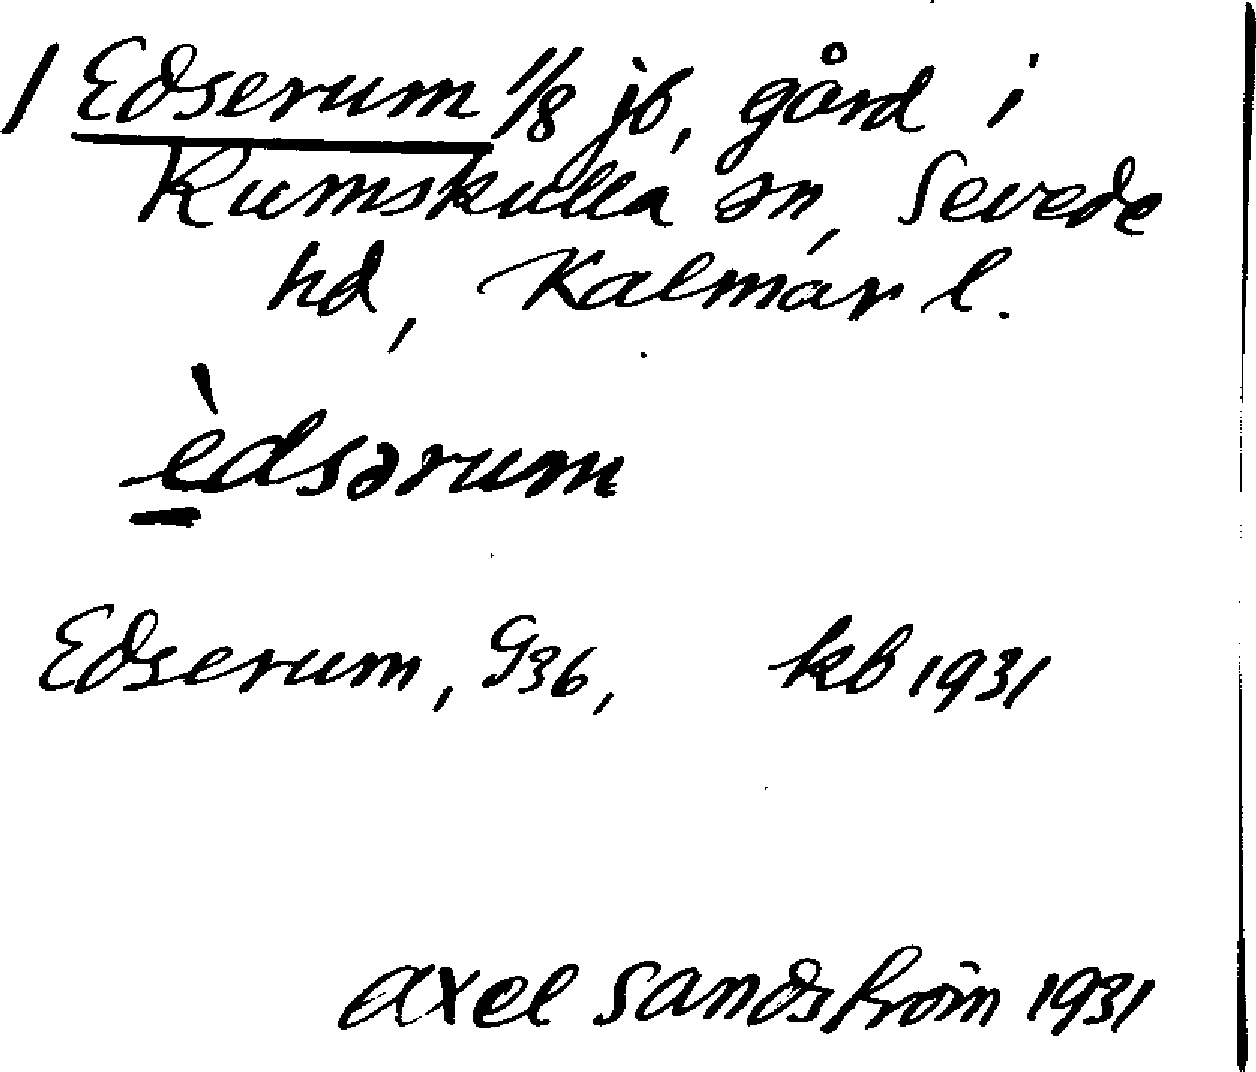 1 Edserum 1/8 jb, gård i
Rumskulla sn, Sevede
hd, Kalmar l.
èdsərum
Edserum, G36, kb 1931
Axel Sandström 1931